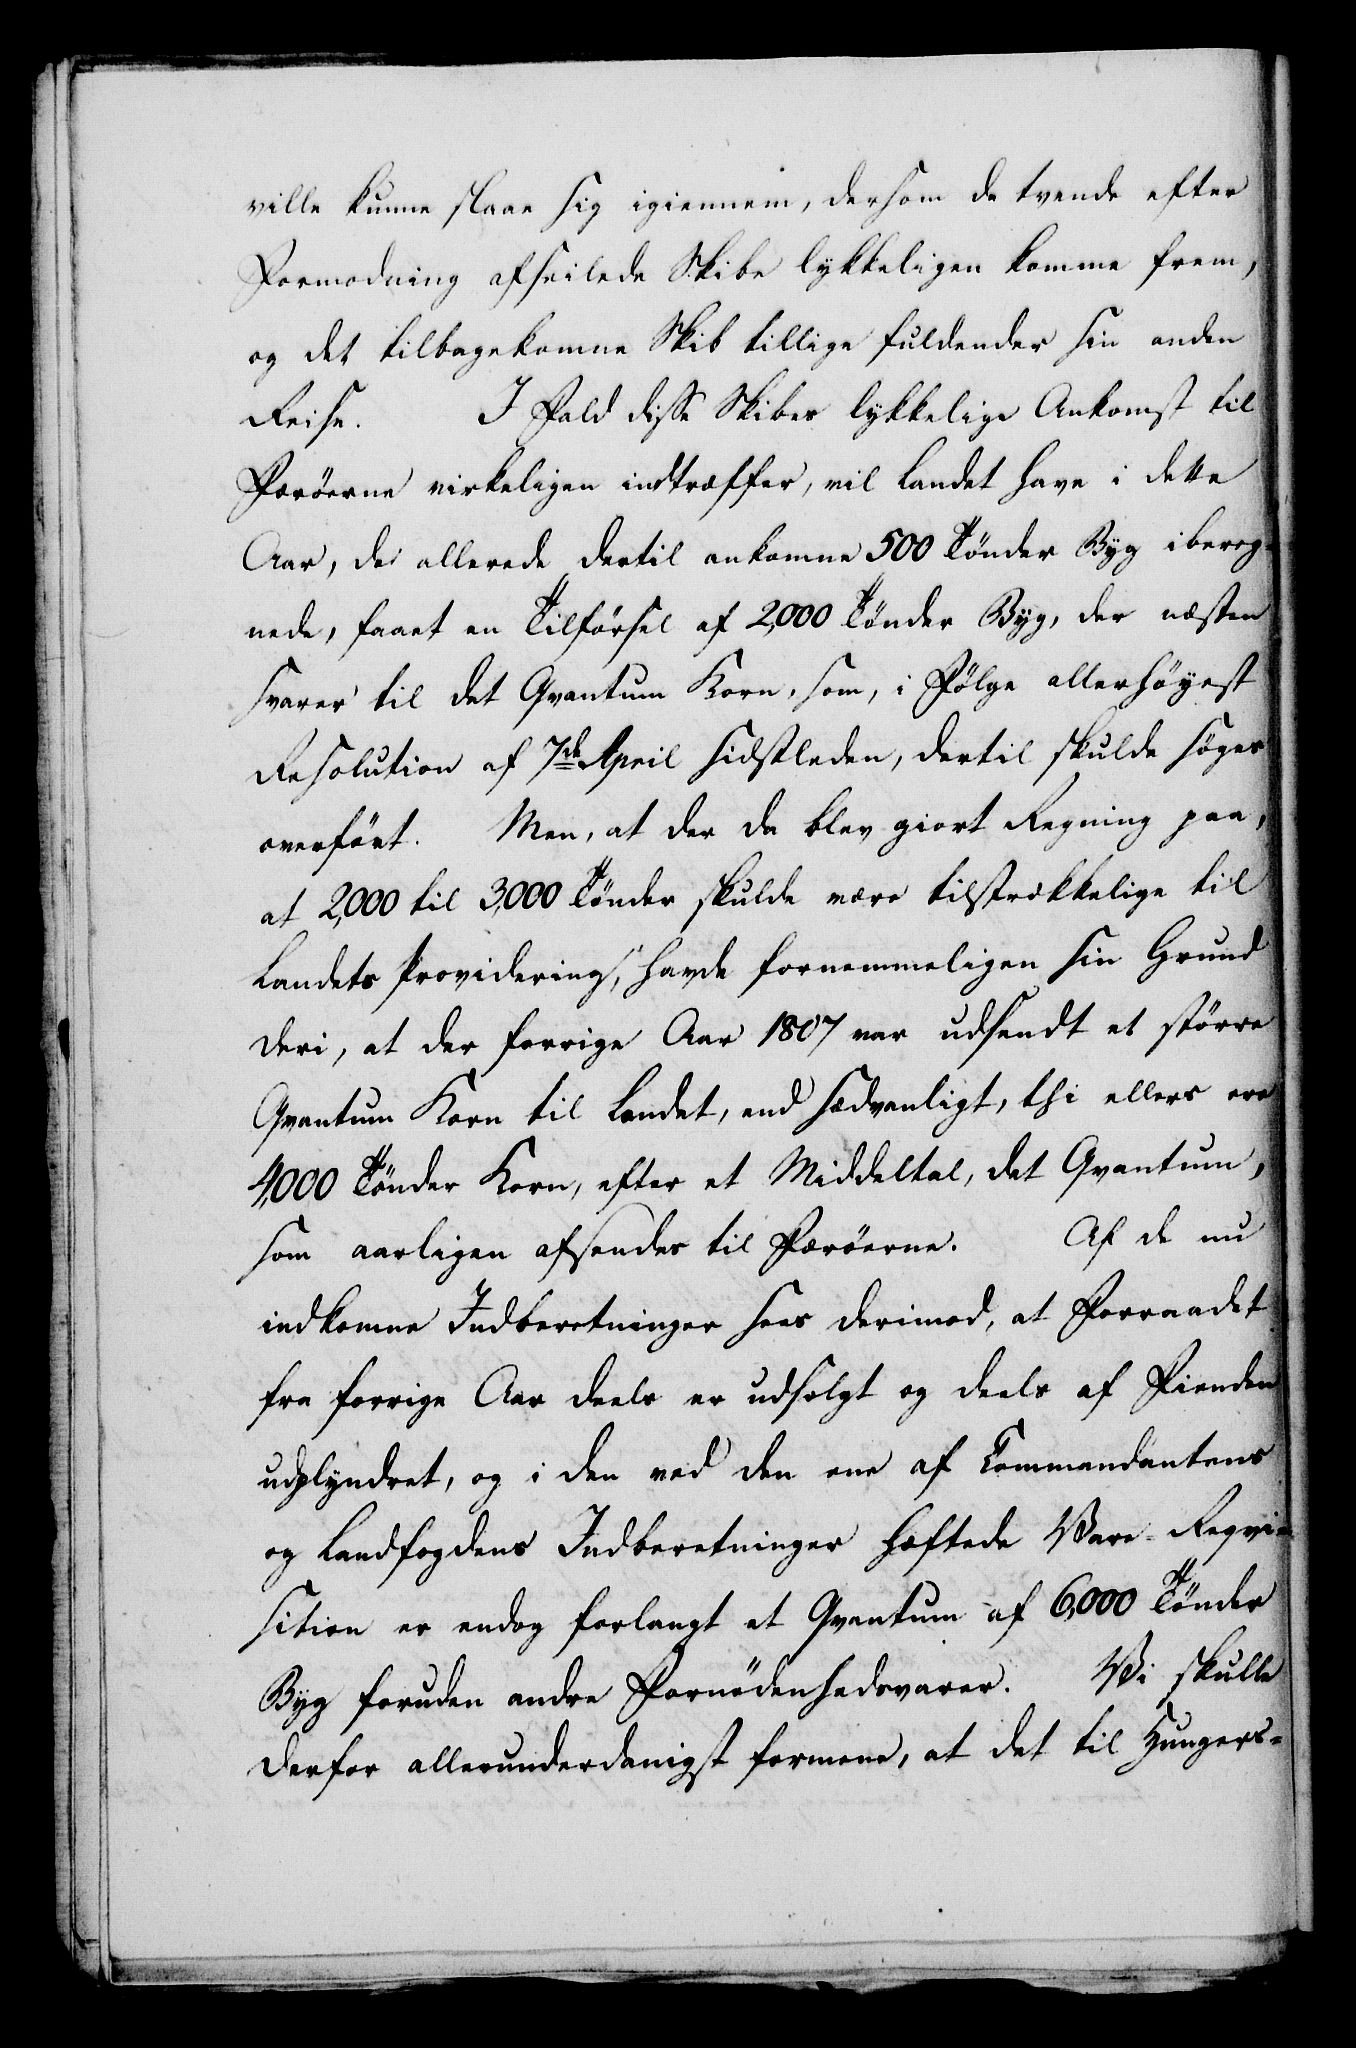 ville kunne slaae sig igiennem, dersom de tvende efter
Formodning afseilede Skibe lykkeligen komme frem,
og det tilbagekomne Skib tillige fuldender sin anden
Reise. I Fald disse Skibes lykkelige Ankomst til
Færöerne virkeligen indtræffer, vil Landet have i dette
Aar, de allerede dertil ankomne 500 Tönder Byg ibereg-
nede, faaet en Tilförsel af 2,000 Tönder Byg, der næsten
svarer til det Qvantum Korn, som, i Fölge allerhöyest
Resolution af 7de April sidstleden, dertil skulde söges
overfört. Men, at der da blev giort Regning paa,
at 2,000 til 3,000 Tönder skulde være tilstrækkelige til
Landets Providering, havde fornemmeligen sin Grund
deri, at der forrige Aar 1807 var udsendt et större
Qvantum Korn til Landet, end sædvanligt, thi ellers ere
4,000 Tönder Korn, efter et Middeltal, det Qvantum,
som aarligen afsendes til Færöerne. Af de nu
indkomne Indberetninger sees derimod, at Forraadet
fra forrige Aar deels er udsolgt og deels af Fienden
udplyndret, og i den ved den ene af Commandantens
og Landfogdens Indberetninger hæftede Vare-Reqvi-
sition er endog forlangt et Qvantum af 6,000 Tönder
Byg foruden andre Fornödenhedsvarer. Vi skulle
derfor allerunderdanigst formene, at det til Hungers-